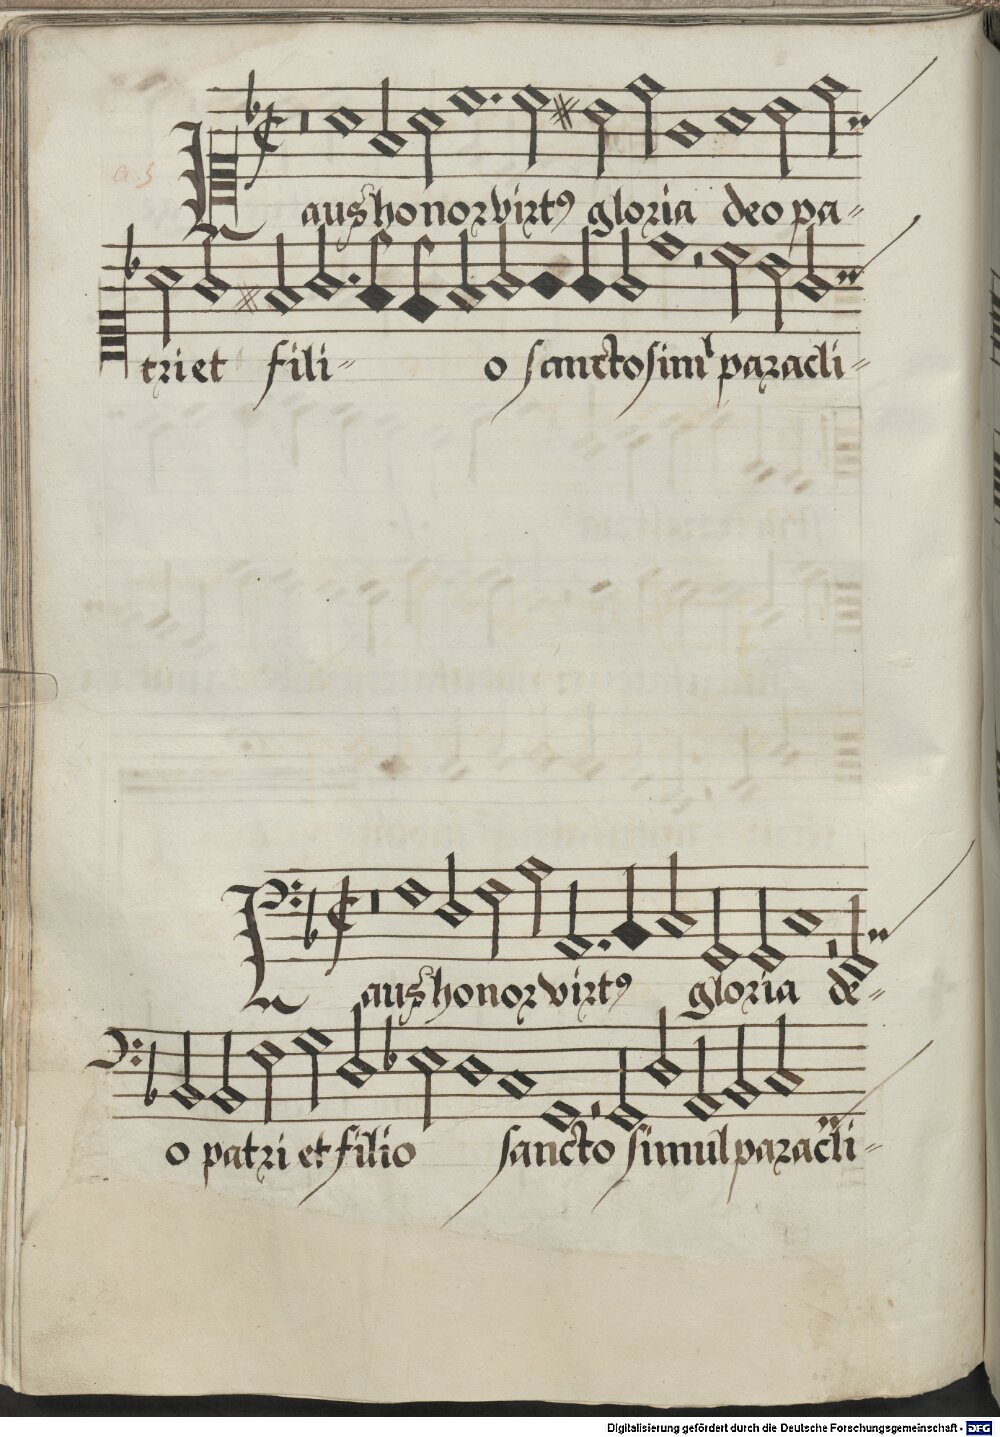 a 5
Laus honor virtꝰ gloria deo pa=
tri et fili= o sancto siml paracli=
Laus honor virtꝰ gloria de=
o patri et filio sancto simul paracli=
Digitalisierung gefördert durch die Deutsche Forschungsgemeinschaft - DFG